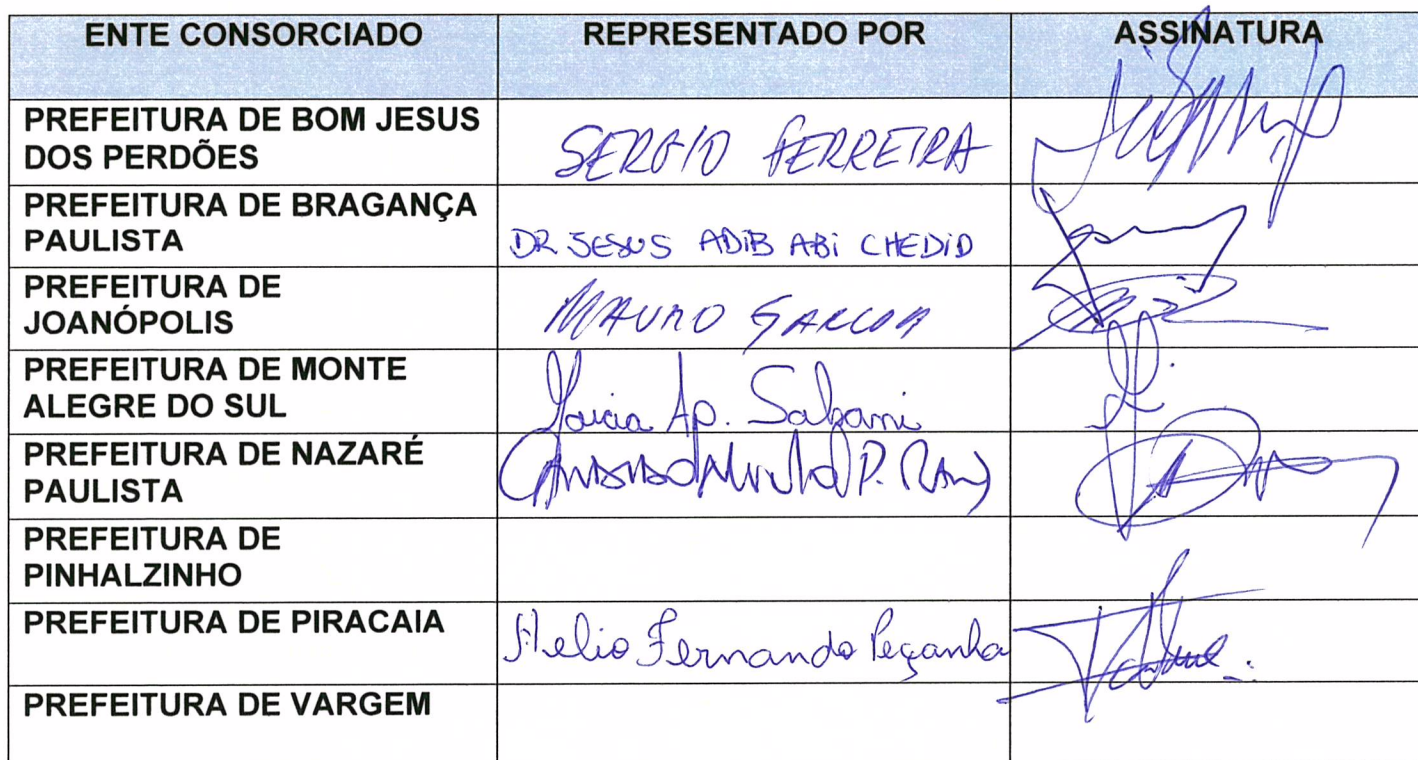 ENTE CONSORCIADO REPRESENTADO POR ASSINATURA
PREFEITURA DE BOM JESUS
DOS PERDÕES
SERGIO FERREIRA
PREFEITURA DE BRAGANÇA
PAULISTA
DR JESUS ADIB ABI CHEDID
PREFEITURA DE
JOANÓPOLIS
MAURO GARCIA
PREFEITURA DE MONTE
ALEGRE DO SUL
Ap.
PREFEITURA DE NAZARÉ
PAULISTA
P.
PREFEITURA DE
PINHALZINHO
PREFEITURA DE PIRACAIA
Helio Fernando Peçanha
PREFEITURA DE VARGEM